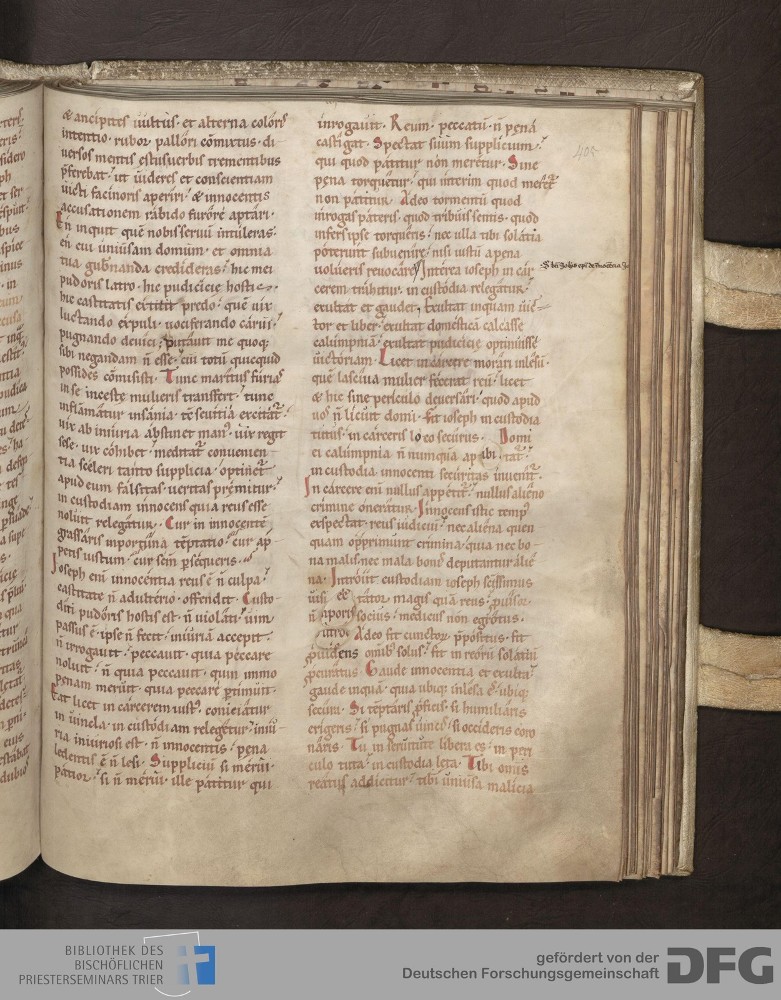 & ancipites uultus· et alterna coloris
intentio· rubor pallori cōmixtus· di
uersos mentis estus uerbis trementibus
p̄ferebat· ut uideres et conscientiam
uicti facinoris aperiri· & innocentis
accusationem rabido furore aptari·
En inquit quē nobis seruū intuleras·
en cui uniuersam domum· et omnia
tua gub̄nanda credideras· hic mei
pudoris latro· hic pudicicię hostis·
hic castitatis predo· quē uix
luctando expuli· uociferando carui·
pugnando deuici; putauit me quoq;
sibi negandam n̄ esse· cui totū quicquid
possides cōmisisti· Tunc maritus furias
in se incestę mulieris transfert· tunc
inflāmatur insania· t̄c seuitia excitat̄·
uix ab iniuria abstinet man᷒· uix regit
sese· uix cohibet· meditat̄ conuenien
tia sceleri tanto supplicia· optinet̄
apud eum falsitas· ueritas p̄mitur·
in custodiam innocens quia reus esse
noluit relegatur· Cur in innocente
grassaris inportuna tēptatio· cur ap
petis iustum· cur scm̄ p̄sequeris·
Ioseph eni innocentia reus ē n̄ culpa·
castitate n̄ adulterio· offendit· Custo
diti pudoris hostis est· n̄ uiolati· uim
passus ē· ipse n̄ fecit· iniuriā accepit·
n̄ irrogauit· peccauit· quia peccare
noluit· n̄ quia peccauit· quin immo
penam meruit· quia peccare p̄timuit·
Eat licet in carcerem iust᷒· coniciatur
in uincla· in custodiam relegetur· iniu
ria iniuriosi est· n̄ innocentis· pęna
ledentis ē n̄ lesi· Suppliciū si merui·
patior· si n̄ merui· ille patitur qui
inrogauit· Reum· peccatū· n̄ pęna
castigat· Spectat suum supplicium·
qui quod patitur non meretur· Sine
pęna torquetur· qui interim quod meret̄
non patitur· Adeo tormentū quod
inrogas pateris· quod tribuis sentis· quod
infers ipse torqueris· nec ulla tibi solatia
poterunt subuenire· nisi iustū a pena
uolueris reuocare· Interea ioseph in car
cerem truditur· in custodia relegatur·
exultat et gaudet, Exultat inquam uic
tor et liber· exultat domesticā calcasse
calumpniā· exultat pudicicię optinuisse
uictoriam· Licet in carcere morari
quē lasciua mulier fecerat reū· licet
& hic sine periculo deuersari· quod apud
uos n̄ licuit domi· Fit ioseph in custodia
tutus· in carceris loco securus· Domi
ei calumpnia n̄ numquā
in custodia innocenti securitas inuenit̄·
In carcere eni nullus appetit̄· nullus alieno
crimine oneratur· Innocens istic temp᷒
exspectat· reus iudiciū· nec aliena quen
quam opprimunt crimina· quia nec bo
na malis· nec mala bonis deputantur aliē
na· Introiit custodiam ioseph scīssimus
uisitator magis quā reus· p̄uisor
n̄ socius· medicus non egrotus·
Adeo fit cunctor̄ p̄positus· fit
p̄uidens omib᷒ solus· fit in reorū solatiū
p̄curatus· Gaude innocentia et exulta·
gaude inquā· quia ubiq; inlesa ē· ubiq;
secura· Si tēptaris p̄ficis· si humiliaris
erigeris· si pugnas uincis· si occideris coro
naris· Tu in seruitute libera es· in peri
culo tuta· in custodia lęta· Tibi omis
reatus addicitur· tibi uniusa malicia
405
BIBLIOTHEK DES
BISCHÖFLICHEN
PRIESTERSEMINARS TRIER
gefördert von der
Deutschen Forschungsgemeinschaft
DFG